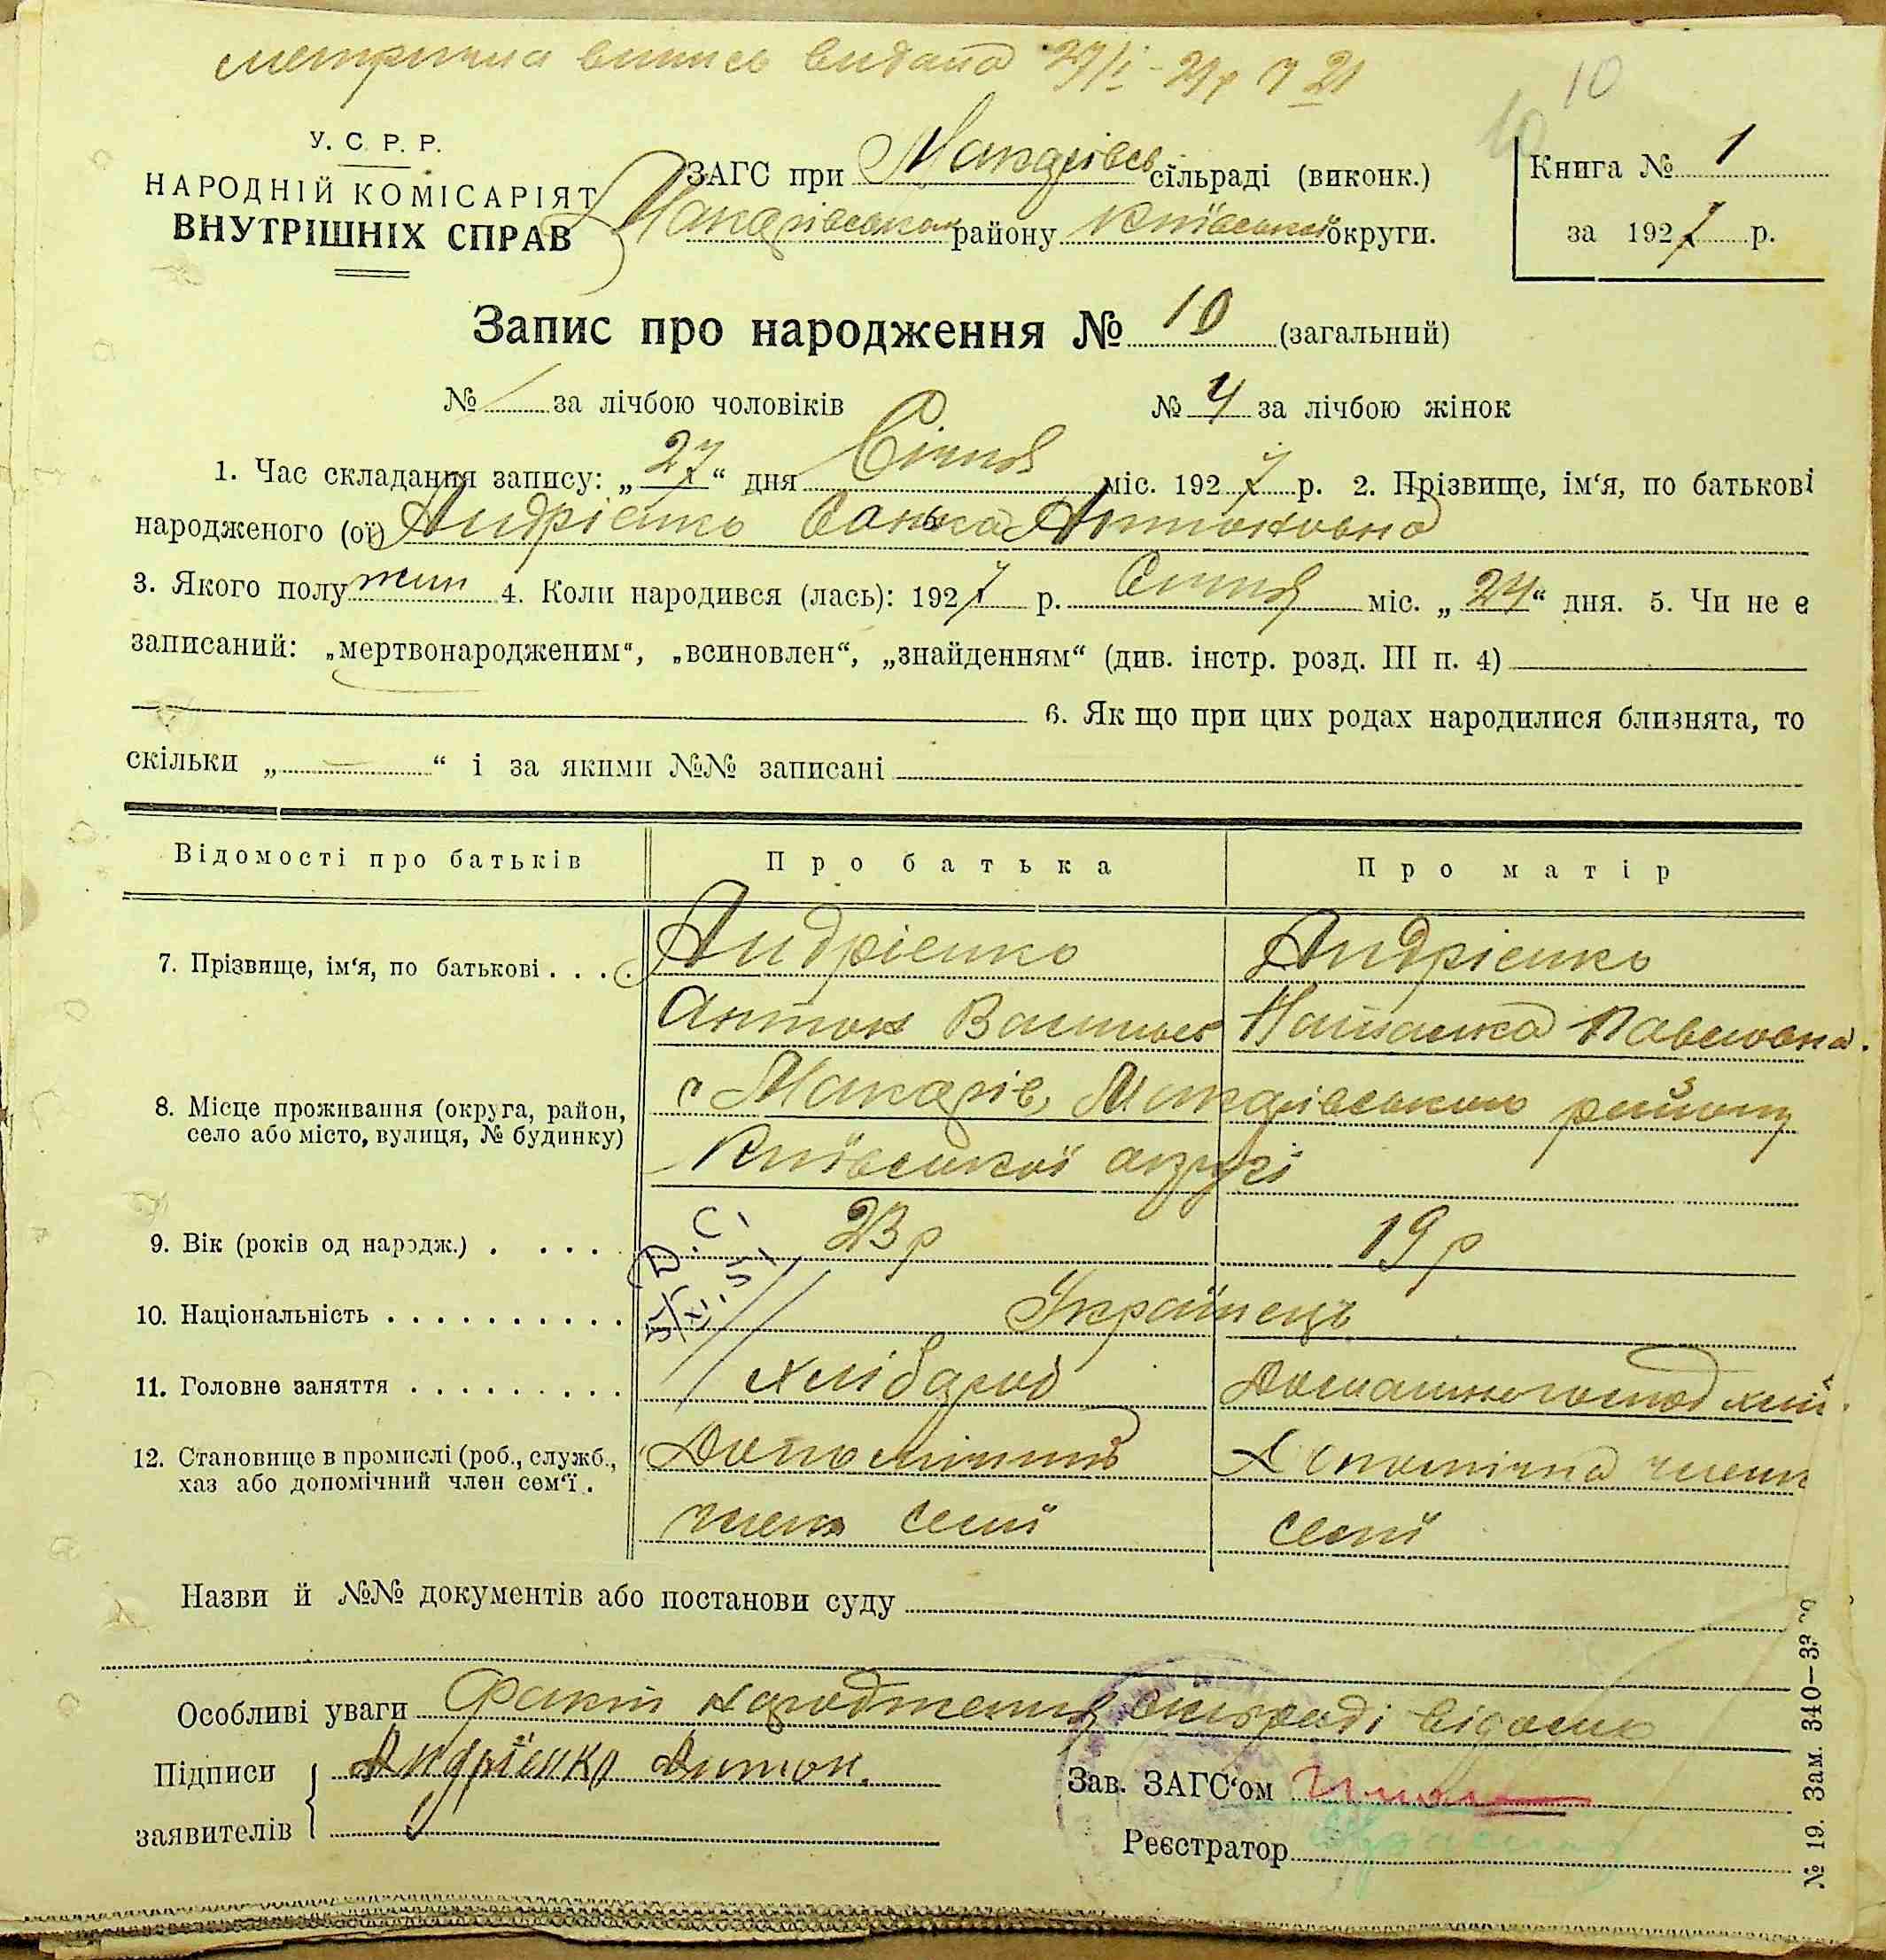 метрична випись видана 27/I-27р №21
10
У. С. Р. Р.
НАРОДНІЙ КОМІСАРІЯТ
ВНУТРІШНІХ СПРАВ
ЗАГС при Макарівськ сільраді (виконк.)
Макарівського району Київської округи.
Книга № 1
за 1927 р.
Запис про народження № 10 (загальний)
№ за лічбою чоловіків № 4 за лічбою жінок
1. Час складання запису: „27“ дня Січня міс. 1927 р. 2. Прізвище, ім‘я, по батькові
народженого (ої) Андрієнко Антоновна
3. Якого полу жін 4. Коли народився (лась): 1927 р. Січня міс. „24“ дня. 5. Чи не є
записаний: „мертвонародженим“, „всиновлен“, „знайденням“ (див. інстр. розд. III п. 4)
6. Як що при цих родах народилися близнята, то
скільки „ “ і за якими №№ записані
Відомості про батьків Про батька Про матір
7. Прізвище, ім‘я, по батькові . . . . Андрієнко Андрієнко
Антон Васильов Наталка Павловна.
8. Місце проживання (округа, район, с Макарів, Макарівського району
село або місто, вулиця, № будинку) Київської округі
9. Вік (років од народж.) . . . . . 23р 19р
10. Національність . . . . . . . . . . Українець
11. Головне заняття . . . . . . . . . хлібороб
12. Становище в промислі (роб., служб., Допомічний Допомічна член
хаз або допомічний член сем‘ї . член семї семї
Назви й №№ документів або постанови суду
Особливі уваги Факт народження сільраді відомо
Підписи Андрієнко Антон.
заявителів
Зав. ЗАГС‘ом
Реєстратор
№ 19. Зам. 340—33